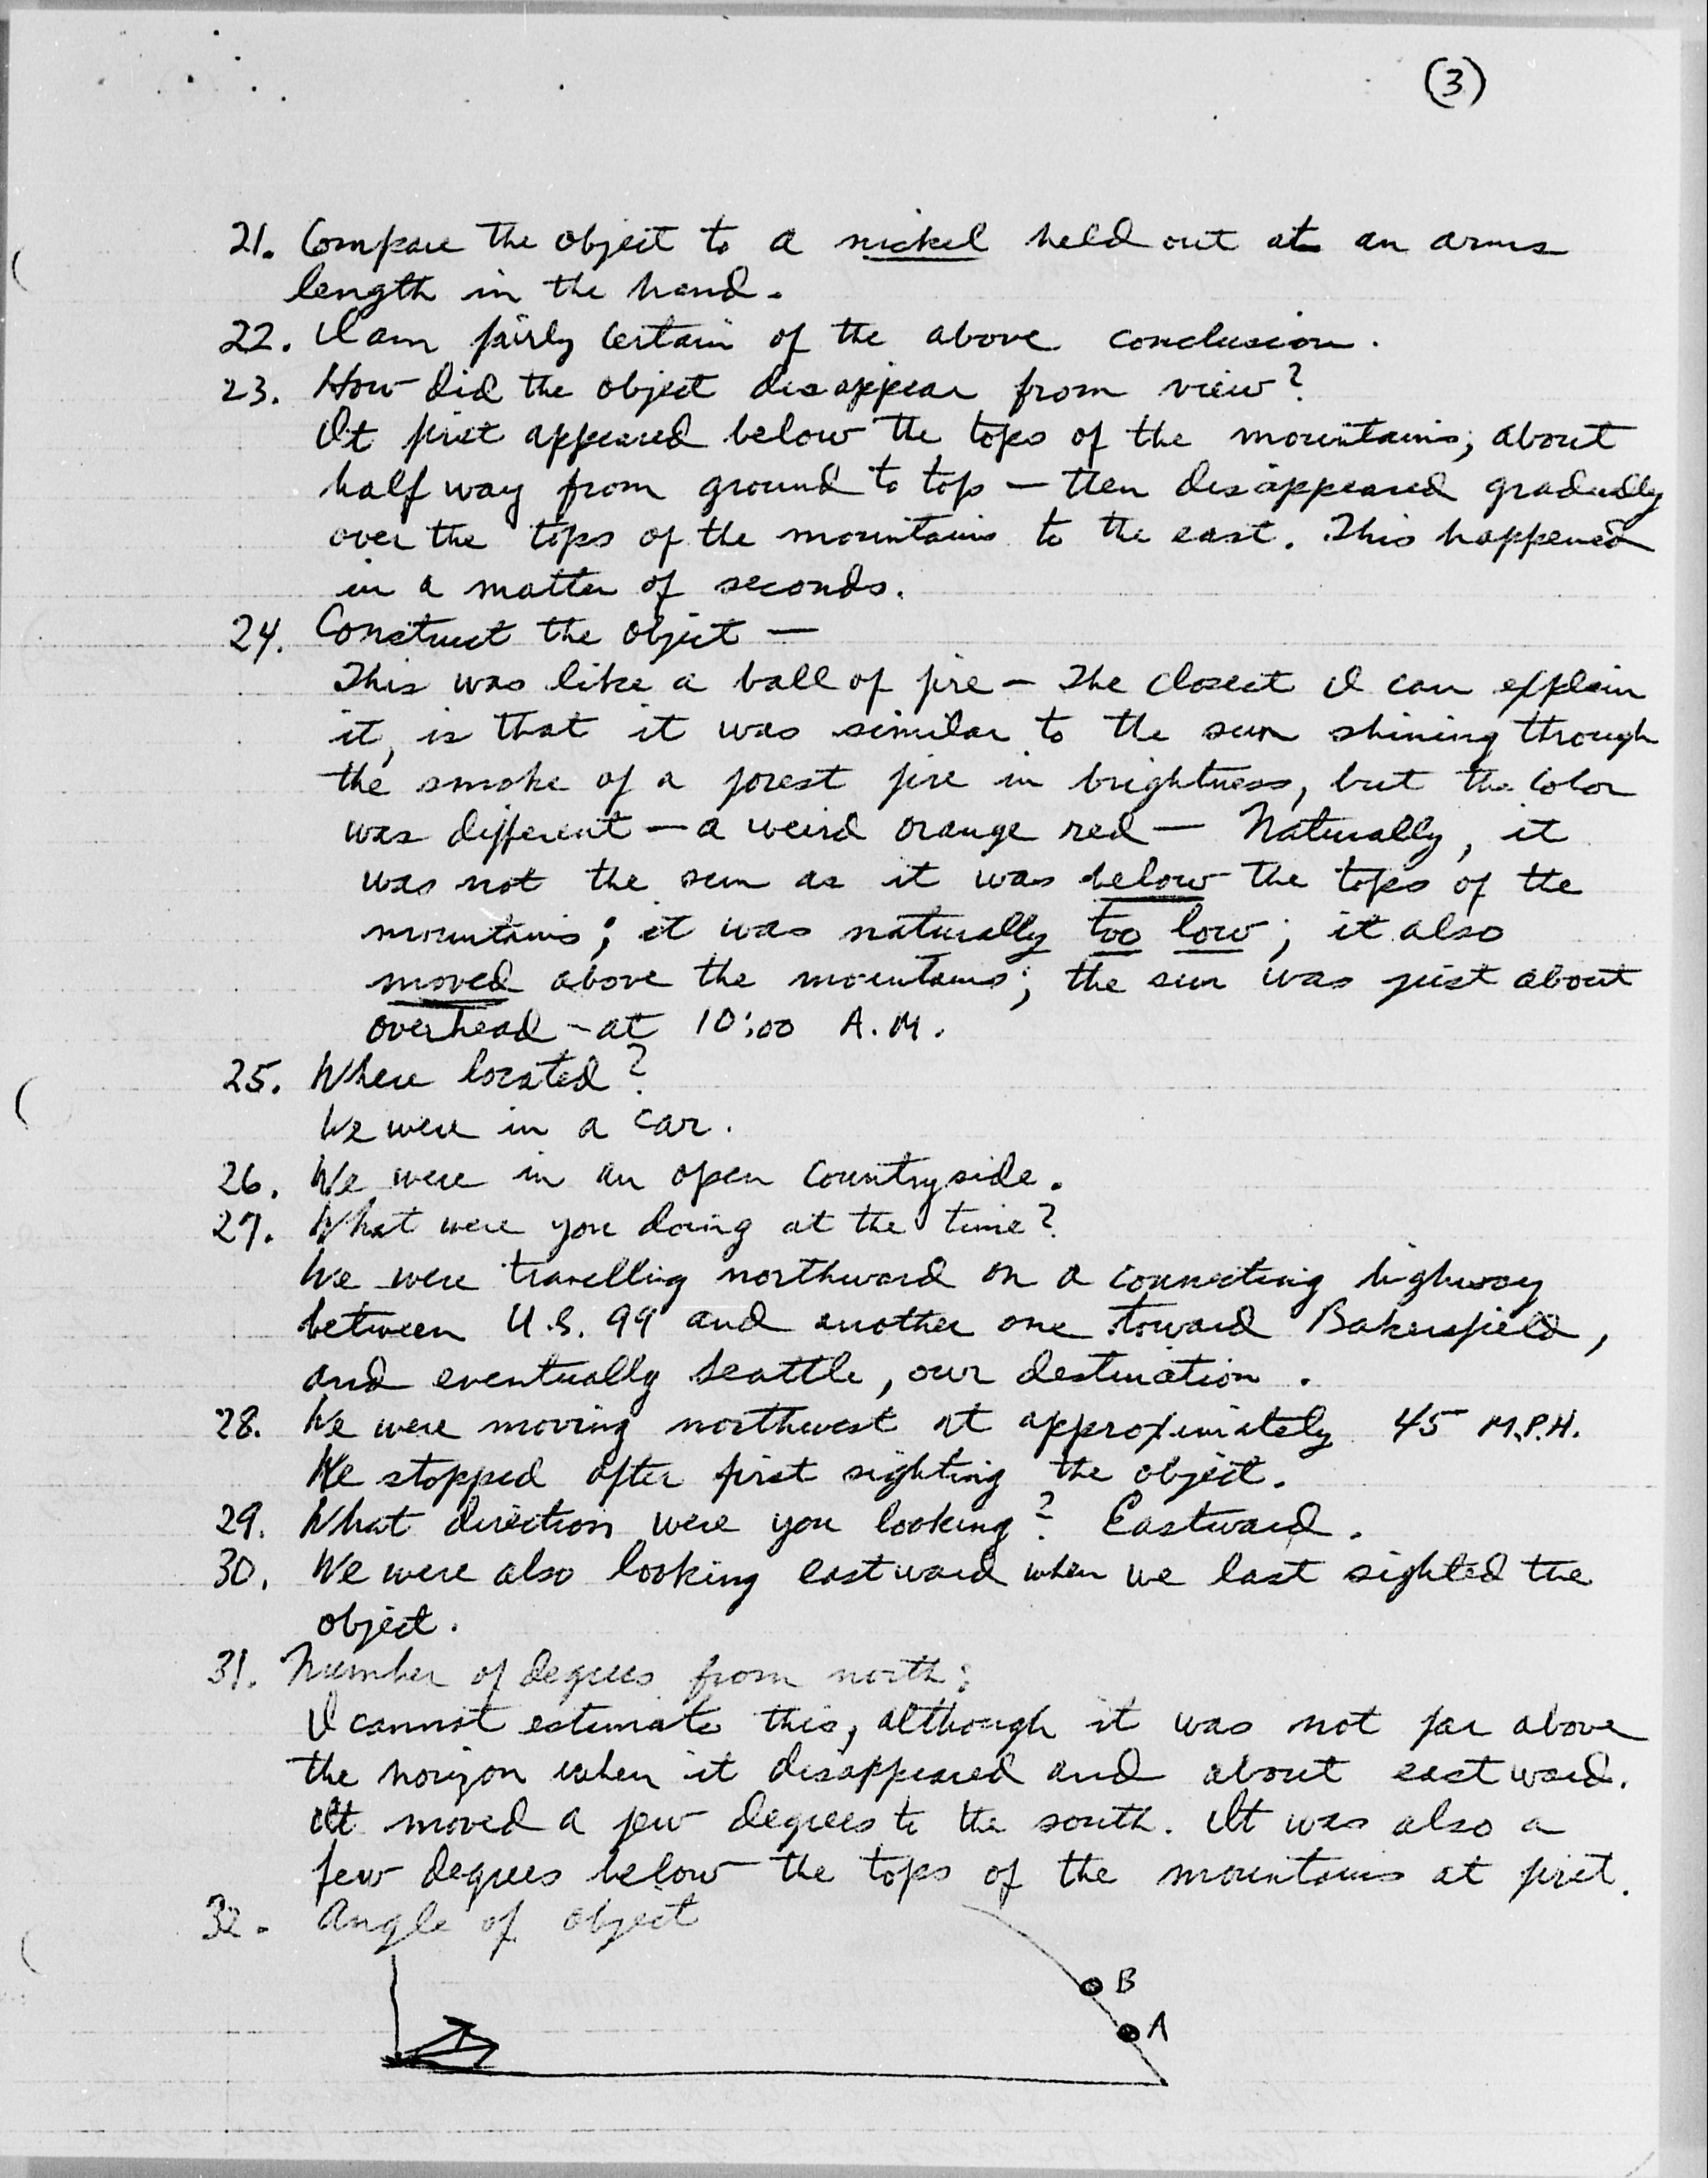 (3)
21. Compare the object to a nickel held out at an arms
length in the hand.
22. I am fairly certain of the above conclusion.
23. How did the object disappear from view?
It first appeared below the tops of the mountains, about
half way from ground to top — then disappeared gradually
over the tops of the mountains to the east. This happened
in a matter of seconds.
24. Construct the object —
This was like a ball of fire — The closest I can explain
it, is that it was similar to the sun shining through
the smoke of a forest fire in brightness, but the color
was different — a weird orange red — Naturally, it
was not the sun as it was below the tops of the
mountains; it was naturally too low; it also
moved above the mountains; the sun was just about
overhead - at 10:00 A.M.
25. Where located?
We were in a car.
26. We were in an open countryside.
27. What were you doing at the time?
We were travelling northward on a connecting highway
between U.S. 99 and another one toward Bakersfield,
and eventually Seattle, our destination.
28. We were moving northwest at approximately 45 M.P.H.
We stopped after first sighting the object.
29. What direction were you looking? Eastward.
30. We were also looking eastward when we last sighted the
object.
31. Number of degrees from north:
I cannot estimate this, although it was not far above
the horizon when it disappeared and about eastward.
It moved a few degrees to the south. It was also a
few degrees below the tops of the mountains at first.
32. Angle of object
B
A